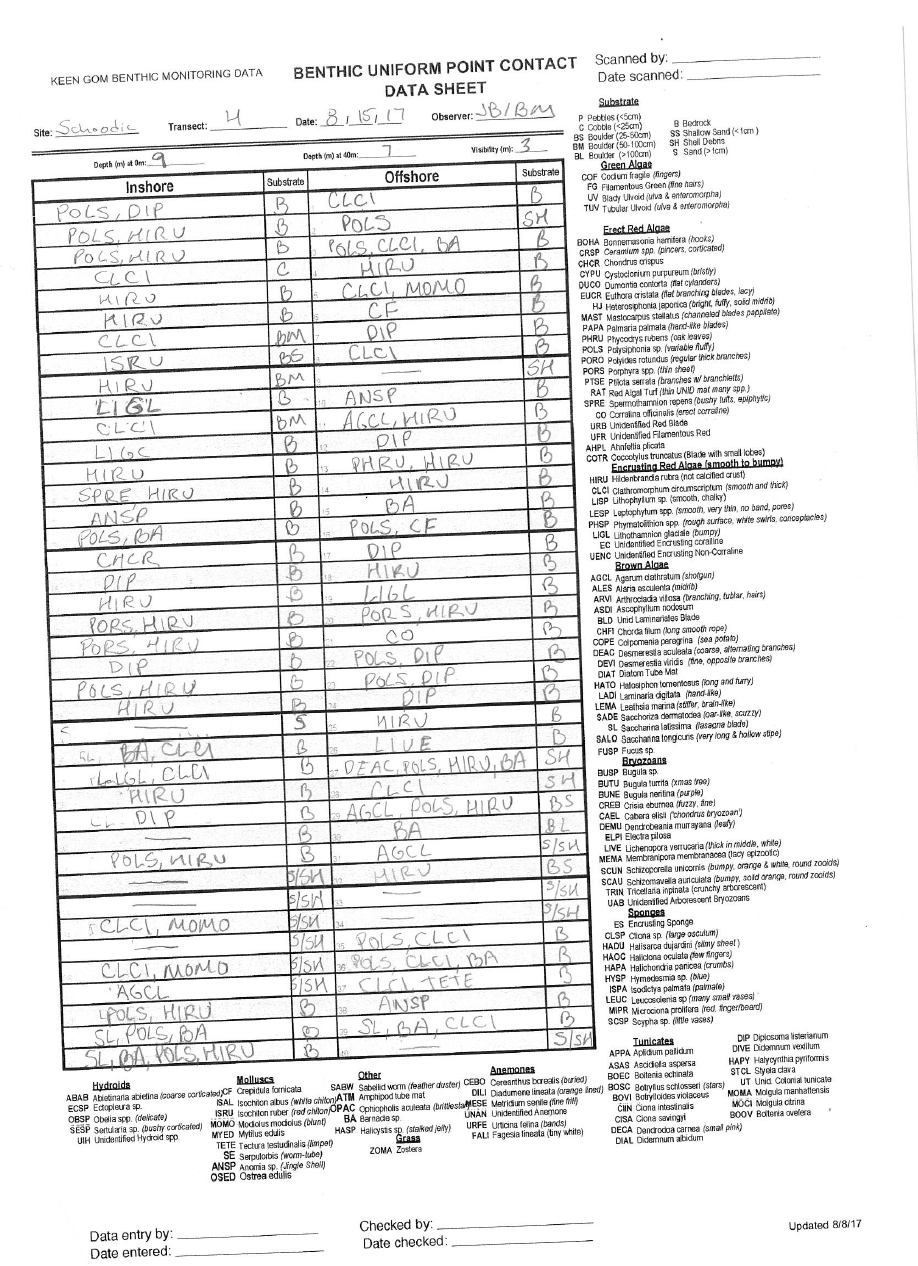 KEEN GOM BENTHIC MONITORING DATA
BENTHIC UNIFORM POINT CONTACT
DATA SHEET
Scanned by:
Date scanned:
Site: Schoodic Transect: 4 Date: 8, 15, 17 Observer: JB/BM
Depth (m) at 0m: 9 Depth (m) at 40m: 7 Visibility (m): 3
Inshore Substrate Offshore Substrate
POLS, DIP B CLCI B
POLS, HIRU B POLS SH
POLS, HIRU B POLS, CLCI, BA B
CLCI C HIRU B
HIRU B CLCI, MOMO B
HIRU B CF B
CLCI BM DIP B
ISRU BS CLCI B
HIRU BM — SH
LIGL B 10 ANSP B
CLCI BM AGCL, HIRU B
LIGL B 12 DIP B
HIRU B 13 PHRU, HIRU B
SPRE HIRU B 14 HIRU B
ANSP B 15 BA B
POLS, BA B 16 POLS, CF B
CHCR B 17 DIP B
DIP B 18 HIRU B
HIRU B 19 LIGL B
PORS, HIRU B 20 PORS, HIRU B
PORS, HIRU B 21 CO B
DIP B 22 POLS, DIP B
POLS, HIRU B 23 POLS, DIP B
HIRU B 24 DIP B
— S 25 HIRU B
BA, CLCI B 26 LIVE B
LIGL, CLCI B 27 DEAC, POLS, HIRU, BA SH
HIRU B 28 CLCI SH
DIP B 29 AGCL, POLS, HIRU BS
— B 30 BA BL
POLS, HIRU B 31 AGCL S/SH
— S/SH 32 HIRU BS
— S/SH 33 — S/SH
CLCI, MOMO S/SH 34 — S/SH
— S/SH 35 POLS, CLCI B
CLCI, MOMO S/SH 36 POLS, CLCI, BA B
AGCL S/SH 37 CLCI, TETE B
POLS, HIRU B 38 ANSP B
SL, POLS, BA B 39 SL, BA, CLCI B
SL, BA, POLS, HIRU B 40 — S/SH
Substrate
P Pebbles (<5cm)
C Cobble (<25cm) B Bedrock
BS Boulder (25-50cm) SS Shallow Sand (<1cm)
BM Boulder (50-100cm) SH Shell Debris
BL Boulder (>100cm) S Sand (>1cm)
Green Algae
COF Codium fragile (fingers)
FG Filamentous Green (fine hairs)
UV Blady Ulvoid (ulva & enteromorpha)
TUV Tubular Ulvoid (ulva & enteromorpha)
Erect Red Algae
BOHA Bonnemasonia hamifera (hooks)
CRSP Ceramium spp. (pincers, corticated)
CHCR Chondrus crispus
CYPU Cystoclonium purpureum (bristly)
DUCO Dumontia contorta (flat cylanders)
EUCR Euthora cristata (flat branching blades, lacy)
HJ Heterosiphonia japonica (bright, fluffy, solid midrib)
MAST Mastocarpus stellatus (channeled blades pappilate)
PAPA Palmaria palmata (hand-like blades)
PHRU Phycodrys rubens (oak leaves)
POLS Polysiphonia sp. (variable fluffy)
PORO Polyides rotundus (regular thick branches)
PORS Porphyra spp. (thin sheet)
PTSE Ptilota serrata (branches w/ branchletts)
RAT Red Algal Turf (thin UNID mat many spp.)
SPRE Spermothamnion repens (bushy tufts, epiphytic)
CO Corallina officinalis (erect corraline)
URB Unidentified Red Blade
UFR Unidentified Filamentous Red
AHPL Ahnfeltia plicata
COTR Coccotylus truncatus (Blade with small lobes)
Encrusting Red Algae (smooth to bumpy)
HIRU Hildenbrandia rubra (not calcified crust)
CLCI Clathromorphum circumscriptum (smooth and thick)
LISP Lithophyllum sp. (smooth, chalky)
LESP Leptophytum spp. (smooth, very thin, no band, pores)
PHSP Phymatolithion spp. (rough surface, white swirls, conceptacles)
LIGL Lithothamnion glaciale (bumpy)
EC Unidentified Encrusting coralline
UENC Unidentified Encrusting Non-Corraline
Brown Algae
AGCL Agarum clathratum (shotgun)
ALES Alaria esculenta (midrib)
ARVI Arthrocladia villosa (branching, tublar, hairs)
ASDI Ascophyllum nodosum
BLD Unid Laminariales Blade
CHFI Chorda filum (long smooth rope)
COPE Colpomenia peregrina (sea potato)
DEAC Desmerestia aculeata (coarse, alternating branches)
DEVI Desmerestia viridis (fine, opposite branches)
DIAT Diatom Tube Mat
HATO Halosiphon tomentosus (long and furry)
LADI Laminaria digitata (hand-like)
LEMA Leathsia marina (stiffer, brain-like)
SADE Sacchoriza dermatodea (oar-like, scuzzy)
SL Saccharina latissima (lasagna blade)
SALO Saccharina longicuris (very long & hollow stipe)
FUSP Fucus sp.
Bryozoans
BUSP Bugula sp.
BUTU Bugula turrita (xmas tree)
BUNE Bugula neritina (purple)
CREB Crisia eburnea (fuzzy, fine)
CAEL Cabera elisii ('chondrus bryozoan')
DEMU Dendrobeania murrayana (leafy)
ELPI Electra pilosa
LIVE Lichenopora verrucaria (thick in middle, white)
MEMA Membranipora membranacea (lacy epizoolic)
SCUN Schizoporella unicornis (bumpy, orange & white, round zooids)
SCAU Schizomavella auriculata (bumpy, solid orange, round zooids)
TRIN Tricellaria inpinata (crunchy arborescent)
UAB Unidentified Arborescent Bryozoans
Sponges
ES Encrusting Sponge
CLSP Cliona sp. (large osculum)
HADU Halisarca dujardini (slimy sheet)
HAOC Haliclona oculata (few fingers)
HAPA Halichondria panicea (crumbs)
HYSP Hymedesmia sp. (blue)
ISPA Isodictya palmata (palmate)
LEUC Leucosolenia sp (many small vases)
MIPR Microciona prolifera (red, finger/beard)
SCSP Scypha sp. (little vases)
Hydroids
ABAB Abietinaria abietina (coarse corticated)
ECSP Ectopleura sp.
OBSP Obelia spp. (delicate)
SESP Sertularia sp. (bushy corticated)
UIH Unidentified Hydroid spp.
Molluscs
CF Crepidula fornicata
ISAL Isochiton albus (white chiton)
ISRU Isochiton ruber (red chiton)
MOMO Modiolus modiolus (blunt)
MYED Mytilus edulis
TETE Tectura testudinalis (limpet)
SE Serpulorbis (worm-tube)
ANSP Anomia sp. (Jingle Shell)
OSED Ostrea edulis
Other
SABW Sabellid worm (feather duster)
ATM Amphipod tube mat
OPAC Ophiopholis aculeata (brittlestar)
BA Barnacle sp.
HASP Halicystis sp. (stalked jelly)
Grass
ZOMA Zostera
Anemones
CEBO Cereanthus borealis (buried)
DILI Diadumene lineata (orange lined)
MESE Metridium senile (fine fill)
UNAN Unidentified Anemone
URFE Urticina felina (bands)
FALI Fagesia lineata (tiny white)
Tunicates
APPA Aplidium pallidum
ASAS Ascidiella aspersa
BOEC Boltenia echinata
BOSC Botryllus schlosseri (stars)
BOVI Botrylloides violaceus
CIIN Ciona intestinalis
CISA Ciona savingyi
DECA Dendrodoa carnea (small pink)
DIAL Didemnum albidum
DIP Diplosoma listerianum
DIVE Didemnum vexillum
HAPY Halycynthia pyriformis
STCL Styela clava
UT Unid. Colonial tunicate
MOMA Molgula manhattensis
MOCI Molgula citrina
BOOV Boltenia ovefera
Data entry by:
Date entered:
Checked by:
Date checked:
Updated 8/8/17